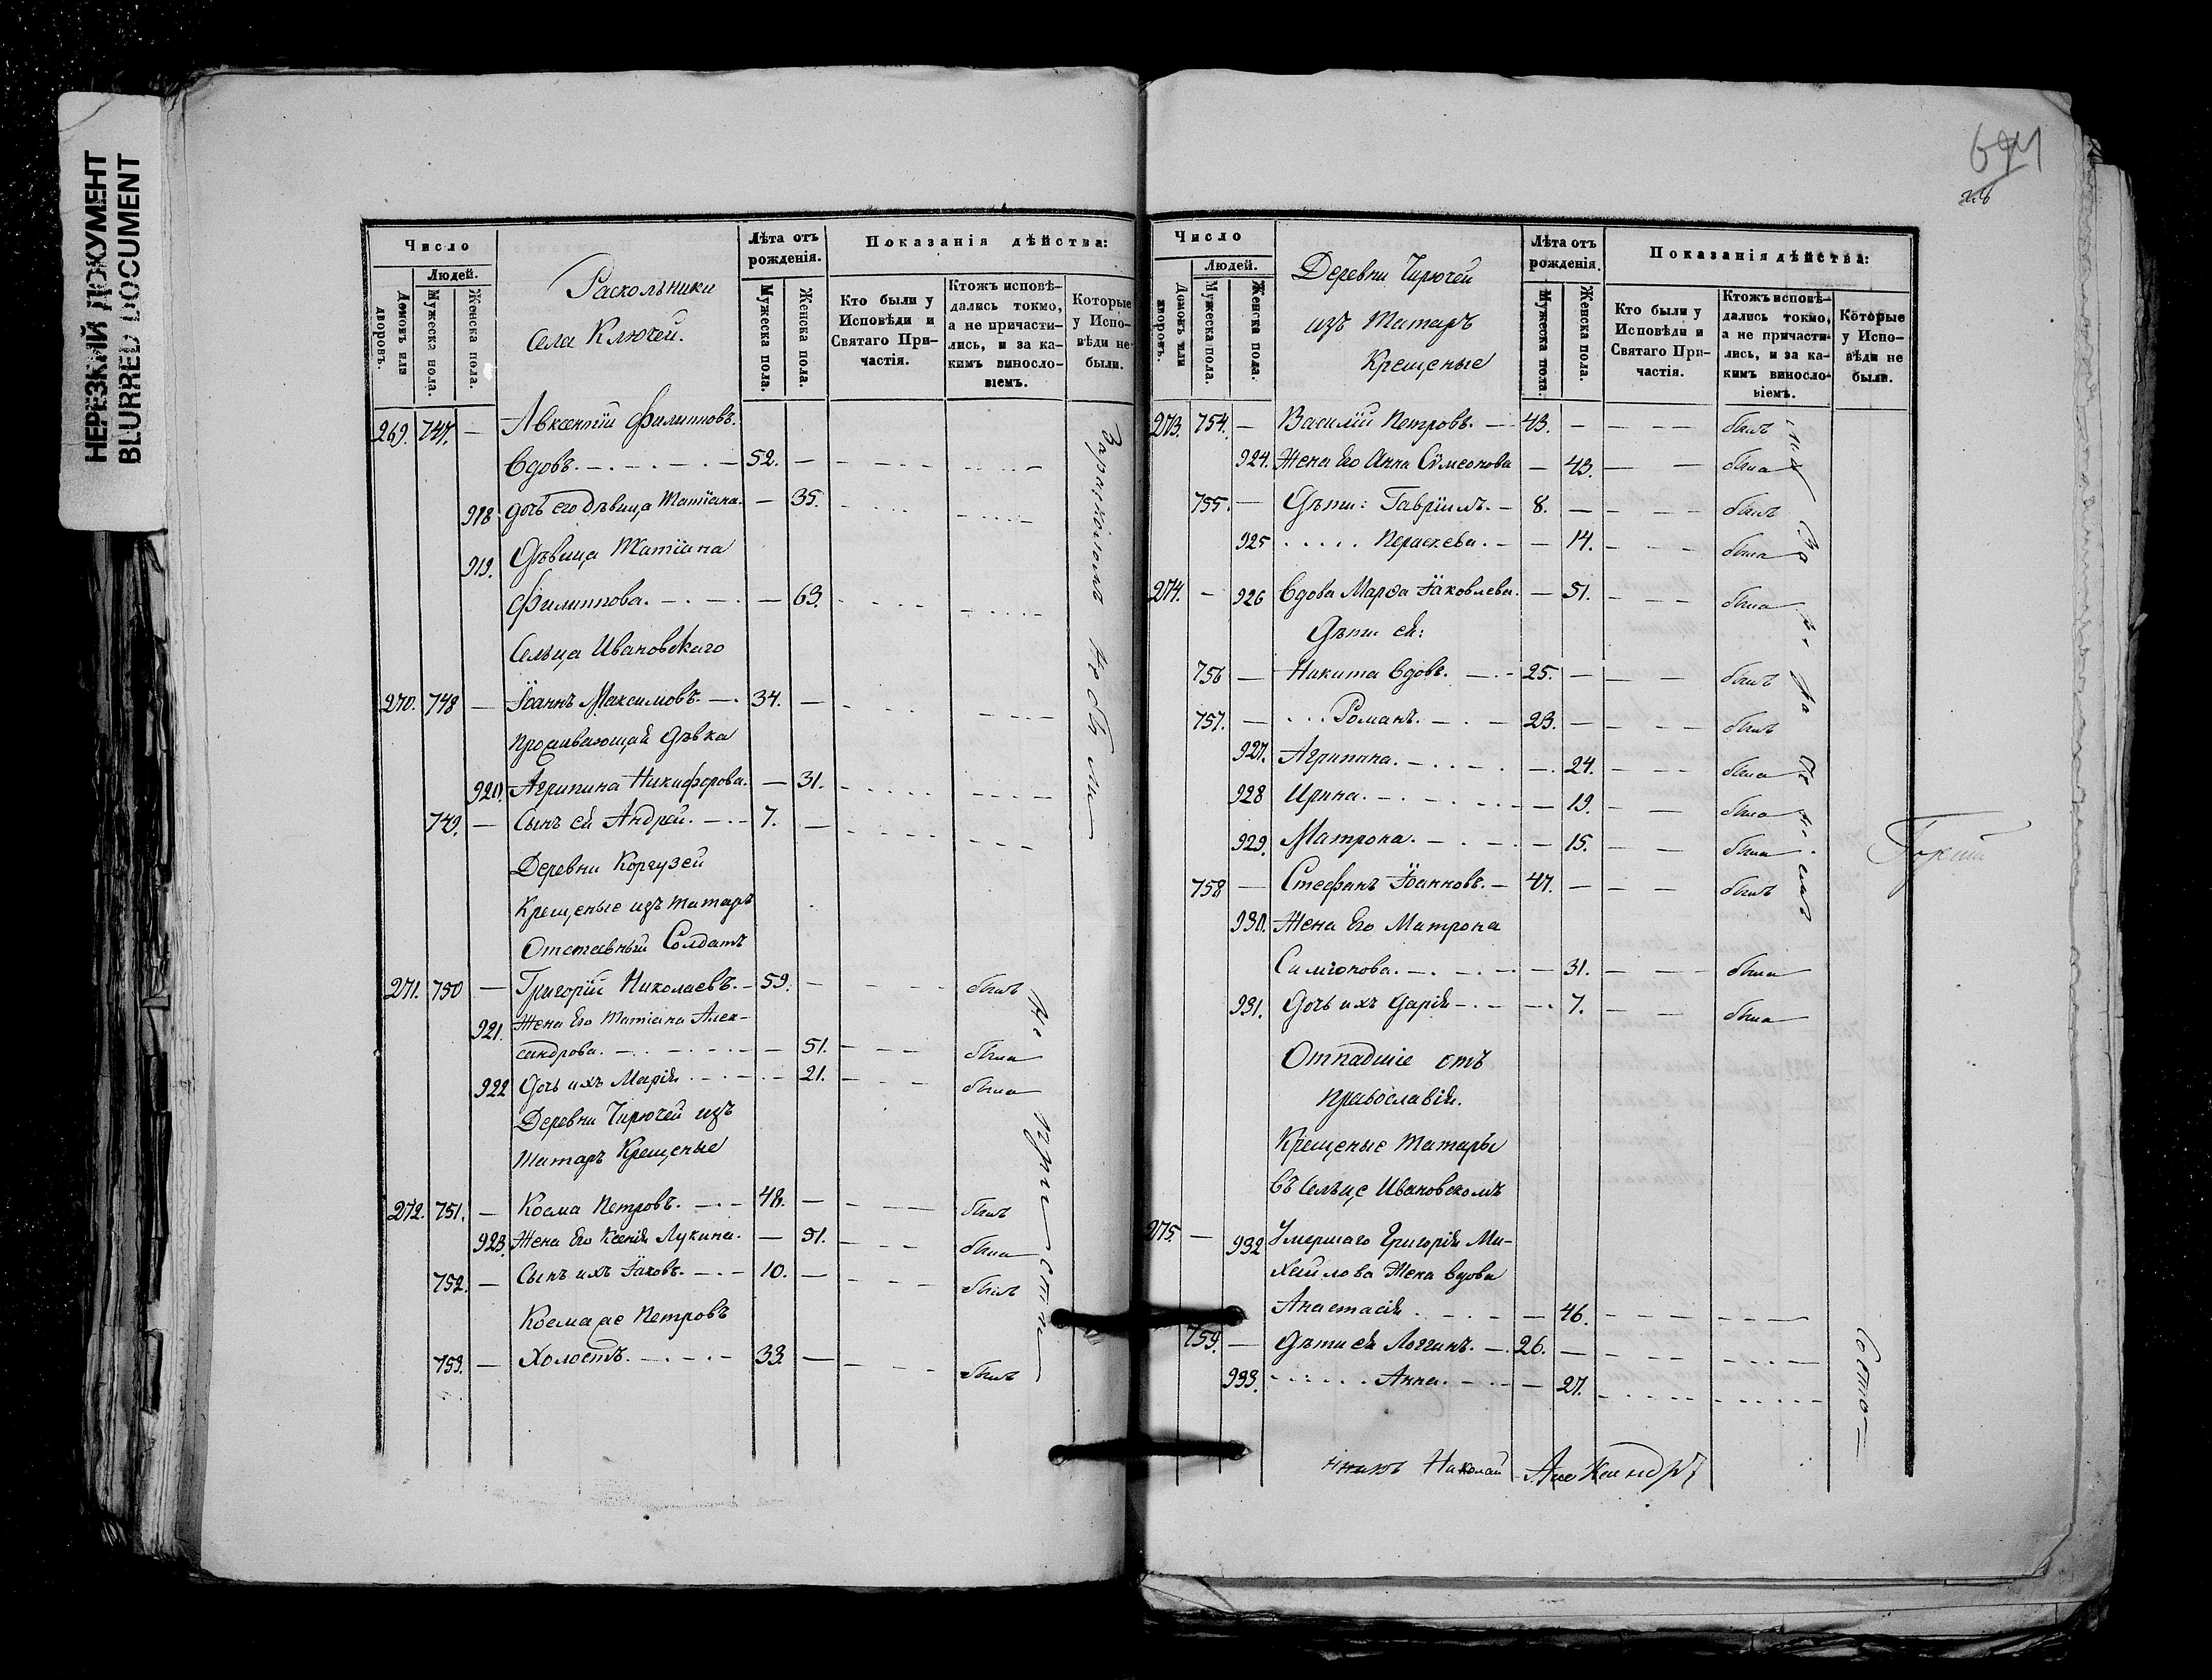 НЕРЕЗКИЙ ДОКУМЕНТ
BLURRED DOCUMENT
Число
Людей.
Домовъ или дворовъ.
Мужеска пола.
Женска пола.
Раскольники
села Ключей.
Лѣта отъ рожденія.
Мужеска пола.
Женска пола.
Показанія дѣйства:
Кто были у Исповѣди и Святаго Причастія.
Ктожъ исповѣдались токмо, а не причастились, и за какимъ винословіемъ.
Которые у Исповѣди не были.
269. 747. — Авксентій Филиповъ.
вдовъ. 52. —
918. дочь его дѣвица Татіана. — 35.
919. Дѣвица Татіана
Филиппова. — 63.
Сельца Ивановскаго
270. 748 — Іоаннъ Максимовъ. 34. —
Проживающая дѣвка
920. Агрипина Никифорова. — 31.
749. — Сынъ ея Андрей. 7. —
За расколомъ не были
Деревни Коргузей
Крещеные изъ татаръ
Отставный Солдатъ
271. 750 — Григорій Николаевъ. 59. — былъ
921. Жена Его Татіана Алек-
сандрова. — 51. была
922 Дочь ихъ Марія 21. была
Деревни Чирючей изъ
Татаръ Крещеные
272. 751. — Косма Петровъ. 48. — былъ
923. Жена Его Ксенія Лукина. — 51. была
752. — Сынъ ихъ Іаковъ. 10. — былъ
Космаже Петровъ
753. — Холостъ. 33. — былъ
641
Число
Людей.
Домовъ или дворовъ.
Мужеска пола.
Женска пола.
Деревни Чирючей
изъ Татаръ
Крещеные
Лѣта отъ рожденія.
Мужеска пола.
Женска пола.
Показанія дѣйства:
Кто были у Исповѣди и Святаго Причастія.
Ктожъ исповѣдались токмо, а не причастились, и за какимъ винословіемъ.
Которые у Исповѣди не были.
273. 754. — Василій Петровъ. 43. — былъ
924. Жена Его Анна Сѵмеонова — 43. была
755. — Дѣти: Гавріилъ. 8. — былъ
925 Параскева. — 14. была
274. — 926 Вдова Марѳа Іаковлева. — 51. была
Дѣти ея:
756 — Никита вдовъ. 25. — былъ
757. — Романъ. 23. — былъ
927. Агрипина. — 24. была
928 Ирина. — 19. была
929. Матрона. — 15. была
758 — Стефанъ Іоанновъ. 47. — былъ
930. Жена Его Матрона
Симіонова. — 31. была
931. Дочь ихъ Дарія 7. была
Отпадшіе отъ
Православія.
Крещеные татары
въ Сельцѣ Ивановскомъ
275. — 932 Умершаго Григорія Ми-
хайлова Жена вдова
Анастасія — 46.
759. — Дѣти ея Логгинъ. 26. —
933. Анна. — 27.
Николай Александр